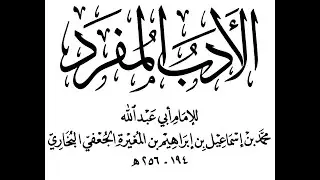 الأدب المفرد
للإمام أبي عبد الله
محمد بن إسماعيل بن إبراهيم بن المغيرة الجعفي البخاري
١٩٤ - ٢٥٦ هـ